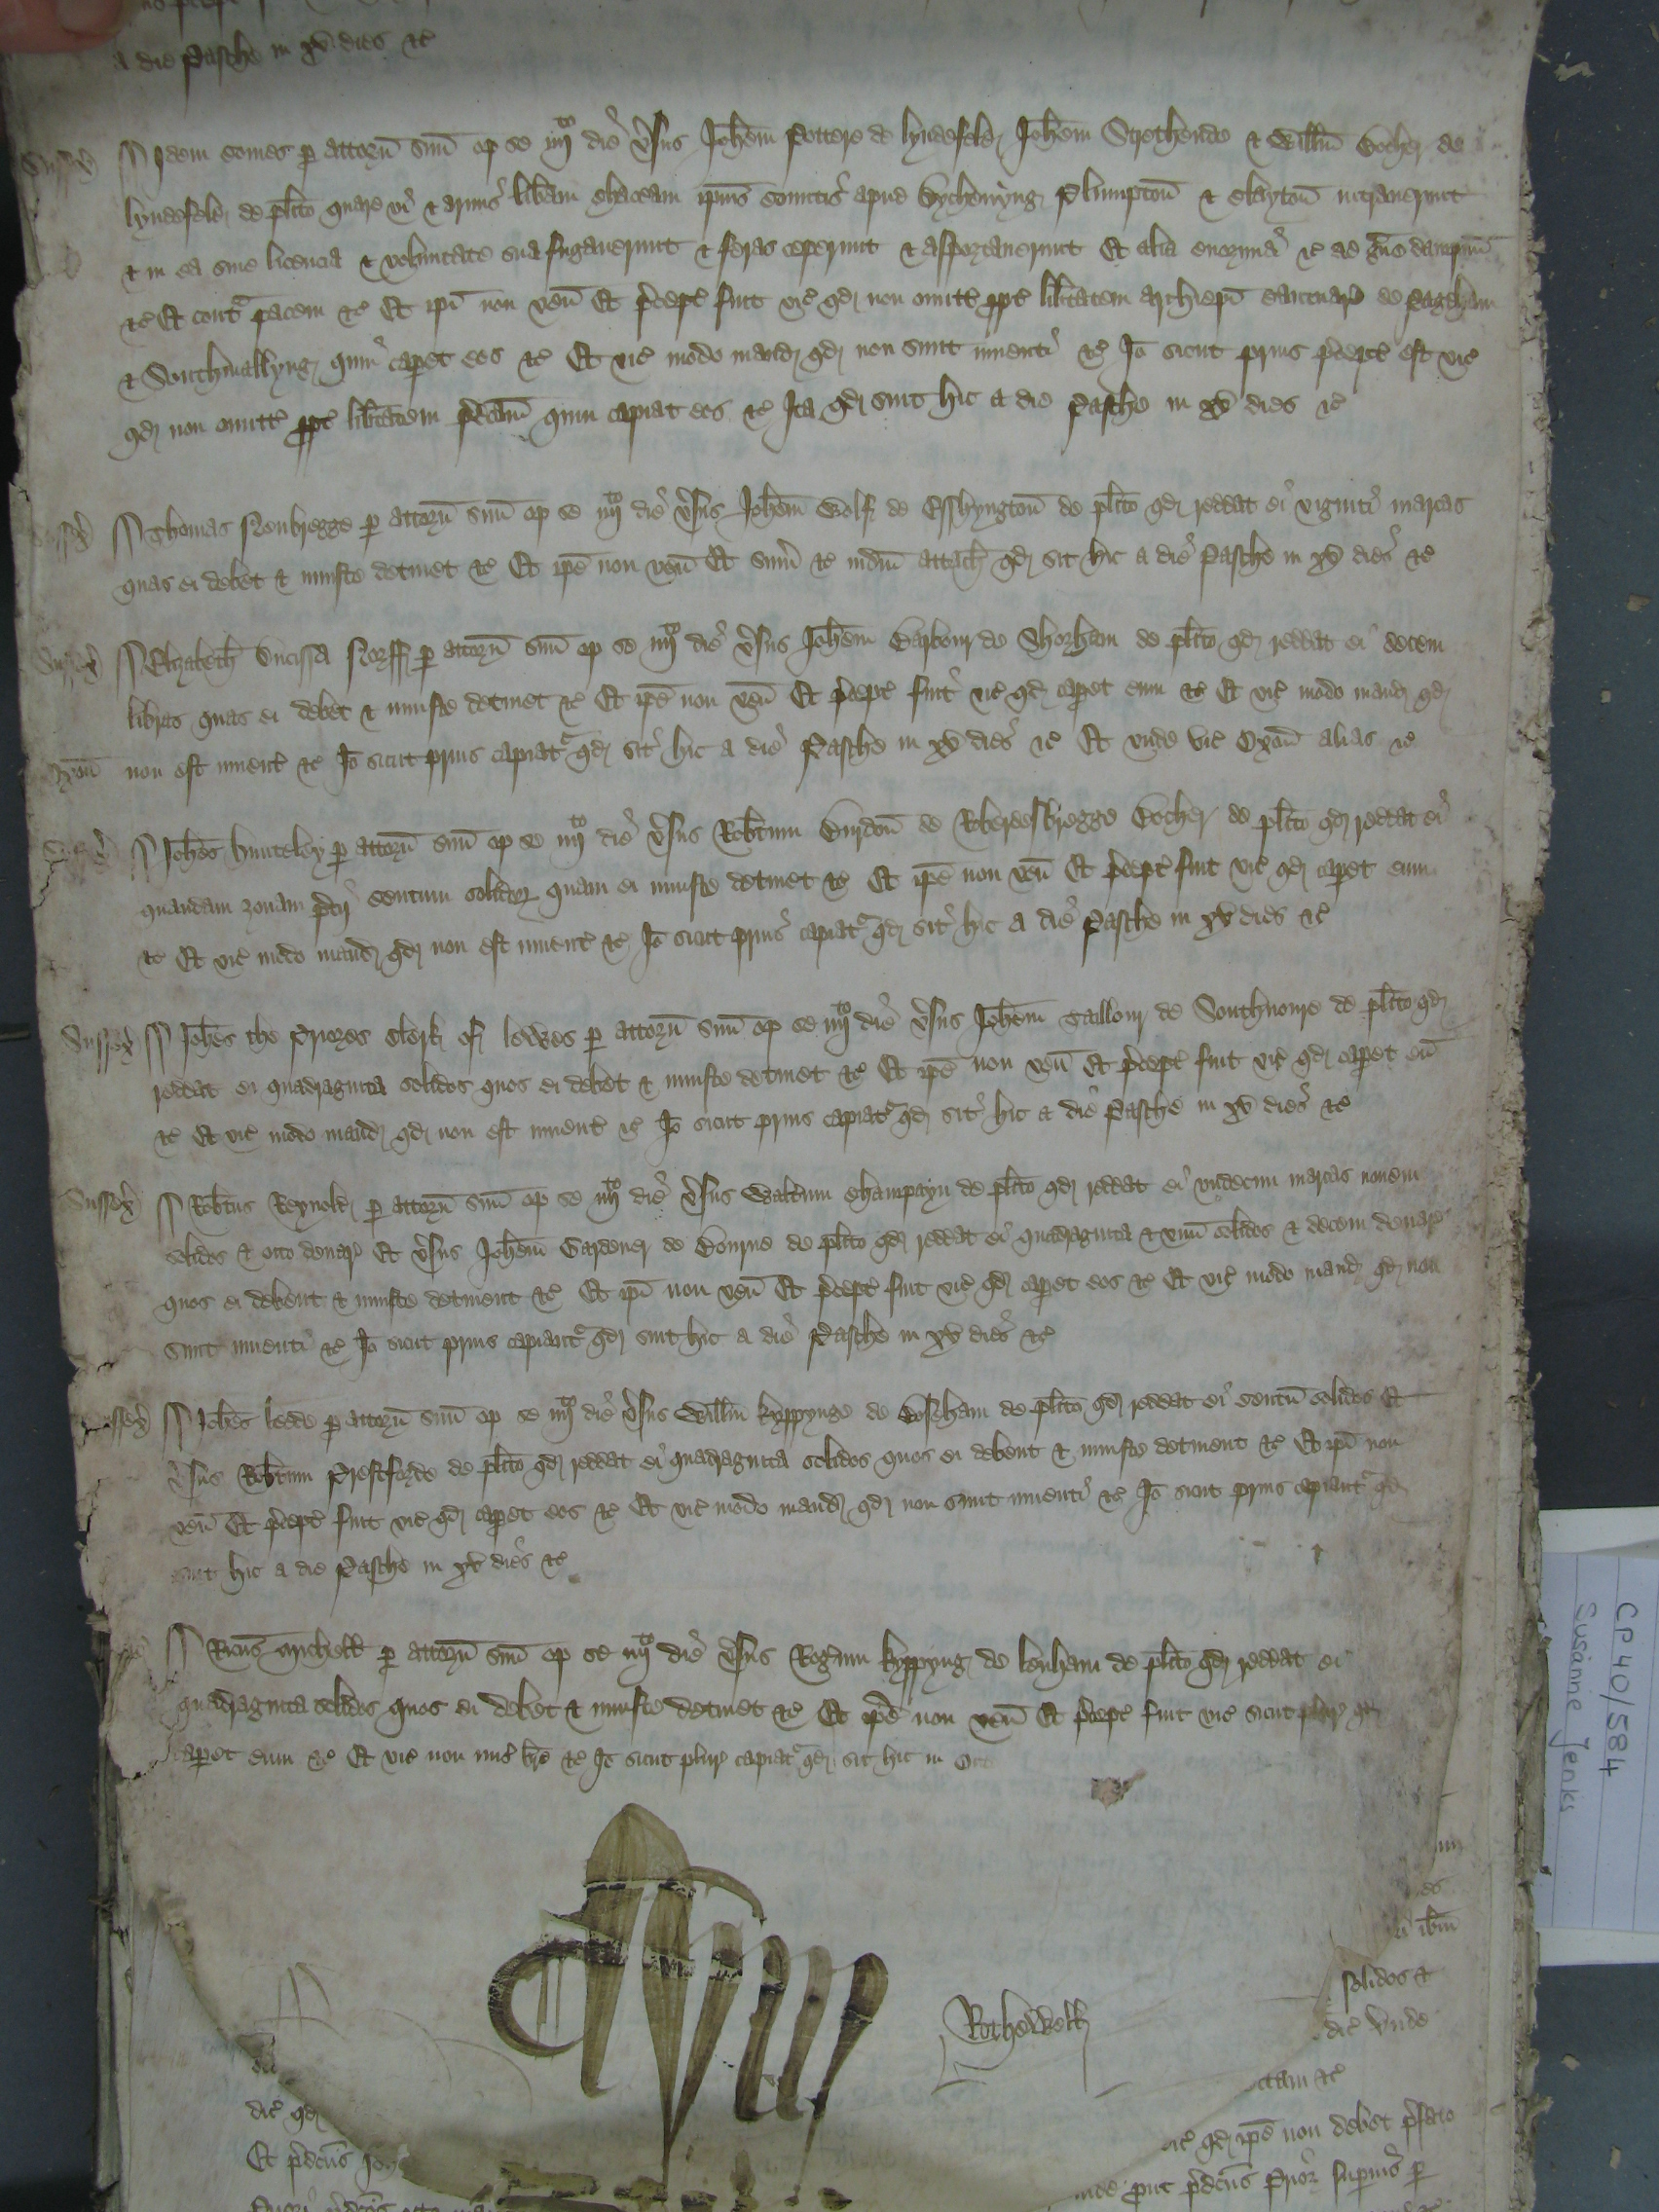 a die Pasche in xv dies &c
Sussex Idem Comes p attorn suu op se iiijto die vsus Johem Pottere de lyndefeld Johem Strothende & Willm Bocher de
lyndefeld de plito quare vi & armis libam chaceam ipius Comitis apud Dychenyng Plumpton & Clayton intrauerunt
& in ea sine licencia & voluntate sua fugauerunt & feras ceperunt & asportauerunt Et alia enormia &c ad graue dampnu
&c Et contra pacem &c Et ipi non ven Et pcept fuit vic qd non omitt ppt libtatem Archiepi Cantuar de Pageham
& Southmallyng quin capet eos &c Et vic modo mand qd non sunt inuenti &c Io sicut prius pcept est vic
qd non omitt ppt libtatem pdcam quin capiat eos &c Ita qd sint hic a die Pasche in xv dies &c
Sussex Thomas Nonbregge p attorn suu op se iiijto die vsus Johem Wolf de Esshyngton de plito qd reddat ei viginti marcas
quas ei debet & iniuste detinet &c Et ipe non ven Et sum &c iudm attach qd sit hic a die Pasche in xv dies &c
Sussex Elizabeth Ducissa Norff p attorn suu op se iiijto die vsus Johem Barbour de Shorham de plito qd reddat ei decem
libras quas ei debet & iniuste detinet &c Et ipe non ven Et pcept fuit vic qd capet eum &c Et vic modo mand qd
Oxon non est inuent &c Io sicut prius capiatr qd sit hic a die Pasche in xv dies &c Et unde vic Oxon alias &c
Sussex Johes hunteley p attorn suu op se iiijto die vsus Robtum Burdon de Roberdesbregge Bocher de plito qd reddat ei
quandam zonam pcij centum solidor quam ei iniuste detinet &c Et ipe non ven Et pcept fuit vic qd capet eum
&c Et vic modo mand qd non est inuent &c Io sicut prius capiatr qd sit hic a die Pasche in xv dies &c
Sussex Johes the Priores Clerk of lewes p attorn suu op se iiijto die vsus Johem Taillour de Southnoure de plito qd
reddat ei quadraginta solidos quos ei debet & iniuste detinet &c Et ipe non ven Et pcept fuit vic qd capet eu
&c Et vic modo mand qd non est inuent &c Io sicut prius capiatr qd sit hic a die Pasche in xv dies &c
Sussex Robtus Reynold p attorn suu op se iiijto die vsus Waltum Champayn de plito qd reddat ei vndecim marcas nouem
solidos & octo denar Et vsus Johem Gardener de Bourne de plito qd reddat ei quadraginta & vnu solidos & decem denar
quos ei debent & iniuste detinent &c Et ipi non ven Et pcept fuit vic qd capet eos &c Et vic modo mand qd non
sunt inuenti &c Io sicut prius capiantr qd sint hic a die Pasche in xv dies &c
ssex Johes ledde p attorn suu op se iiijto die vsus Willm kyppynge de Bosham de plito qd reddat ei centu solidos Et
vsus Robtum Prestforde de plito qd reddat ei quadraginta solidos quos ei debent & iniuste detinent &c Et ipi non
ven Et pcept fuit vic qd capet eos &c Et vic modo mand qd non sunt inuenti &c Io sicut prius capiantr qd
sint hic a die Pasche in xv dies &c
Ricus Michell p attorn suu op se iiijto die vsus Rogum kyppyng de lenham de plito qd reddat ei
quadraginta solidos quos ei debet & iniuste detinet &c Et ipe non ven Et pcept fuit vic sicut plur qd
capet eum &c Et vic non mis bre &c Io sicut plur capiatr qd sit hic in Oct
Rothewell
ibm
solidos &
dic Unde
ctam &c
dic qd
qd ipe non debet pfato
Et pdcus Joh
put pdcus Prior supius p
CP40/584
Susanne Jenks